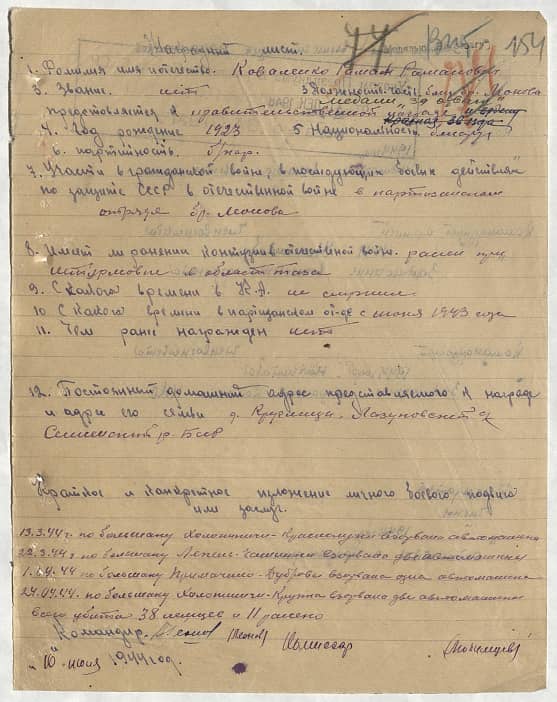 77 154
Наградный лист.
1. Фамилия имя отчество. Коваленко Роман Романович
2. Звание. нет 3 Должность, часть бр. Леонова
представляется к правительственной награде медаль "За отвагу"
4. Год рождение 1923 5 Национальность белорус
6. партийность. б/пар.
7. Участи в гражданской войне, в последующих боевых действиях
по защите СССР в отечественной войне в партизанском
отряде бр. Леонова
8. Имеет ли ранении контузии в отечественной войне. ранен при
штурмовке в области таза
9. С какого времени в К.А. не служил
10 С какого времени в партизанском от-де с июня 1943 года
11. Чем ране награжден нет
12. Постоянный домашний адрес представляемого к награде
и адрес его семьи д.
р. БССР
Краткое и конкретное изложение личного боевого подвига
или заслуг.
13.3.44г. по большаку Холопиничи - взорвана автомашина
22.3.44г по большаку Лепель - взорвана две автомашины
1.04.44 по большаку - Дуброва взорвана одна автомашина
24.04.44. по большаку Холопиничи - Крупка взорвана две автомашины
всего убито 38 немцев и 11 ранено
Командир. (Леонов) Комиссар
"10" июня 1944 год.